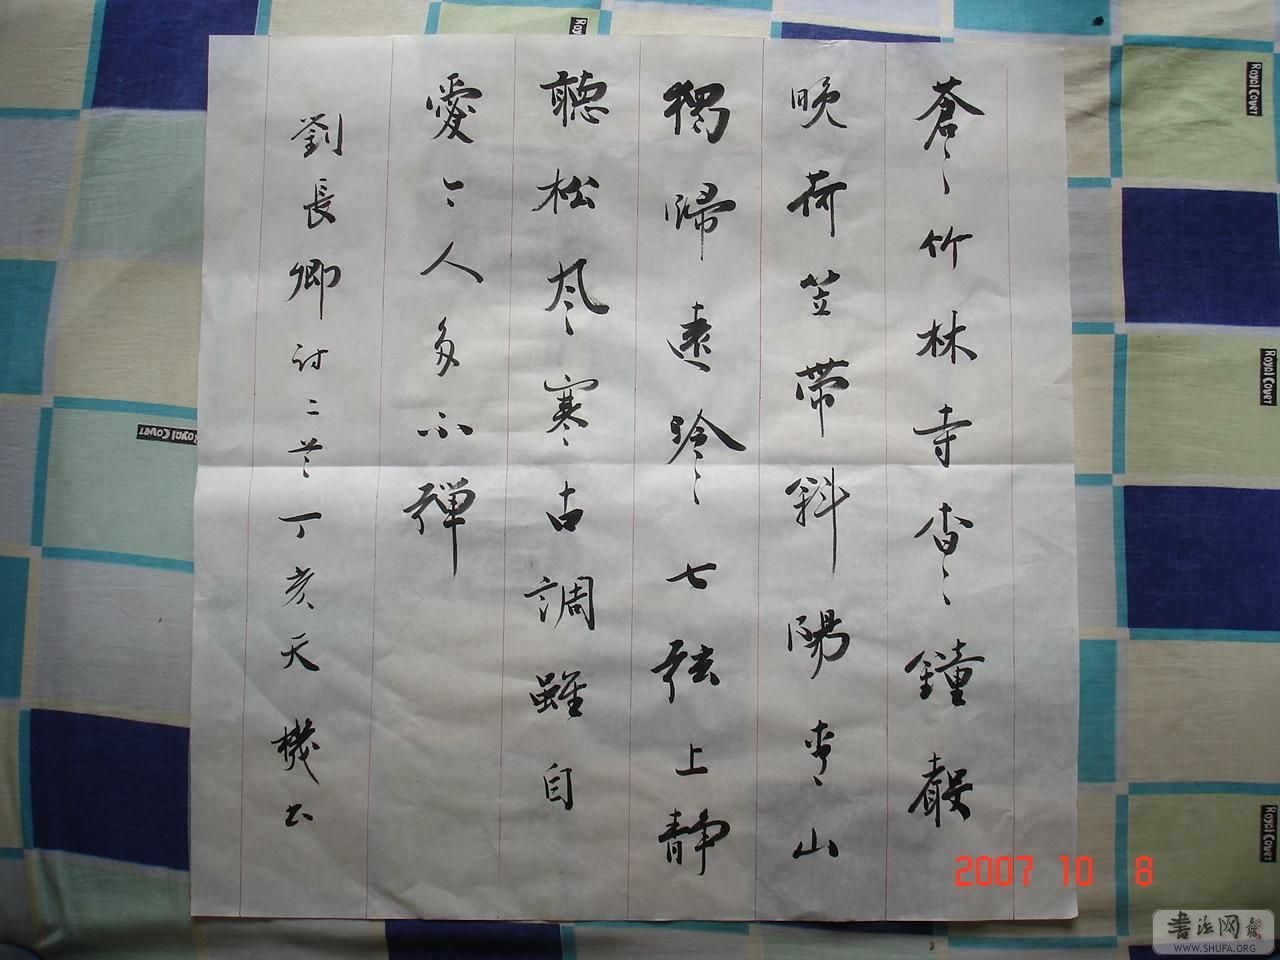 蒼〻竹林寺杳〻鐘聲
晚荷笠帶斜陽青山
獨歸遠泠〻七弦上靜
聽松风寒古調雖自
愛〻人多不彈
劉長卿詩二首丁亥天機书
Royal Cover
Royal Cover
Royal Cover
Royal Cover
Royal Cover
2007 10 8
書法网
WWW.SHUFA.ORG